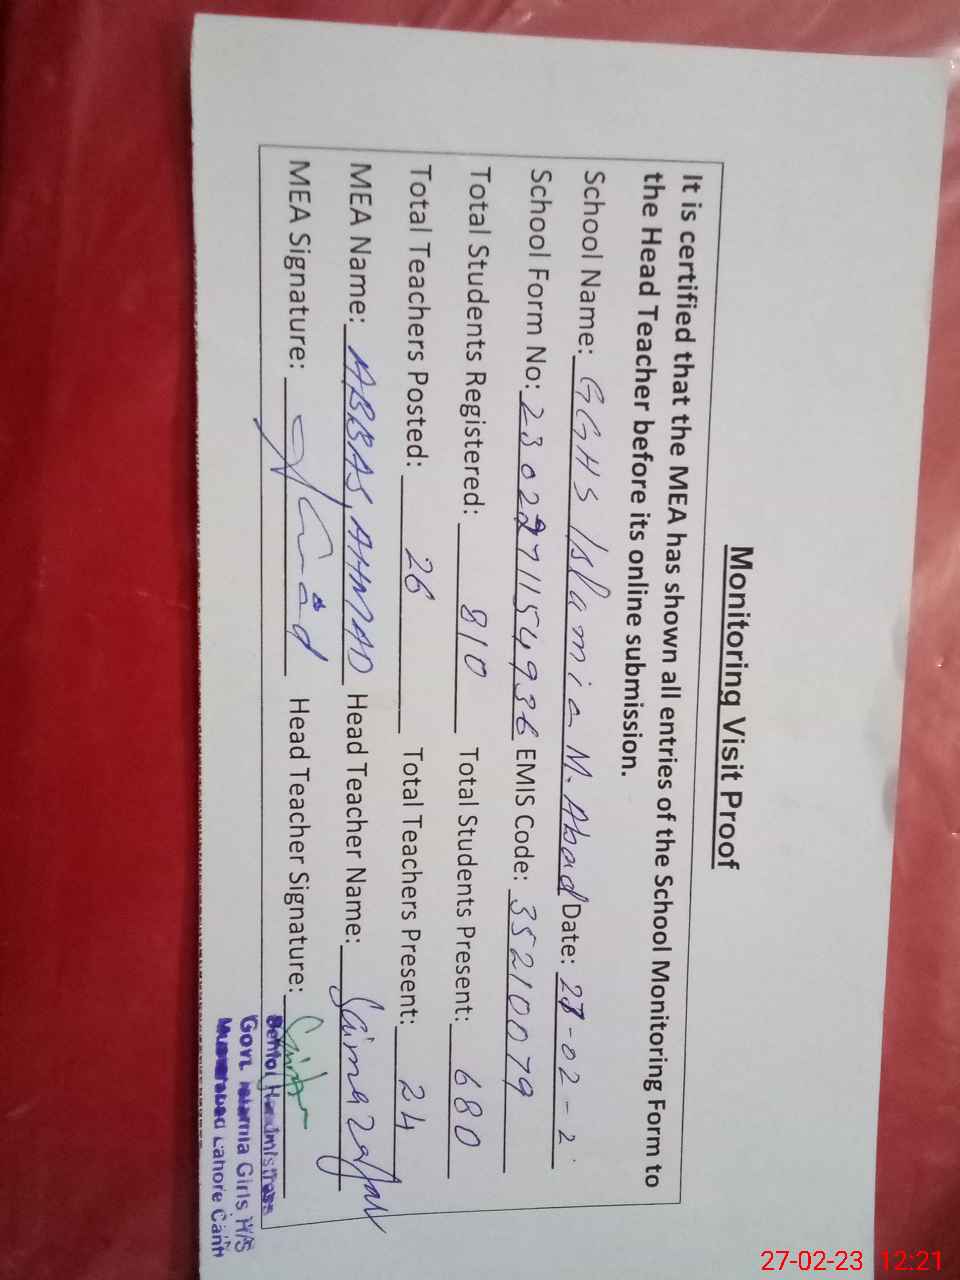 Monitoring Visit Proof
It is certified that the MEA has shown all entries of the School Monitoring Form to
the Head Teacher before its online submission.
School Name: GGHS Islamia M. Abad Date: 27-02-2
School Form No: 2302271154936 EMIS Code: 35210079
Total Students Registered: 810 Total Students Present: 680
Total Teachers Posted: 26 Total Teachers Present: 24
MEA Name: ABBAS, AHMAD Head Teacher Name: Saima Zafar
MEA Signature: Head Teacher Signature:
Senior Headmistress
Govt. Islamia Girls H/S
Lahore Cantt
27-02-23 12:21